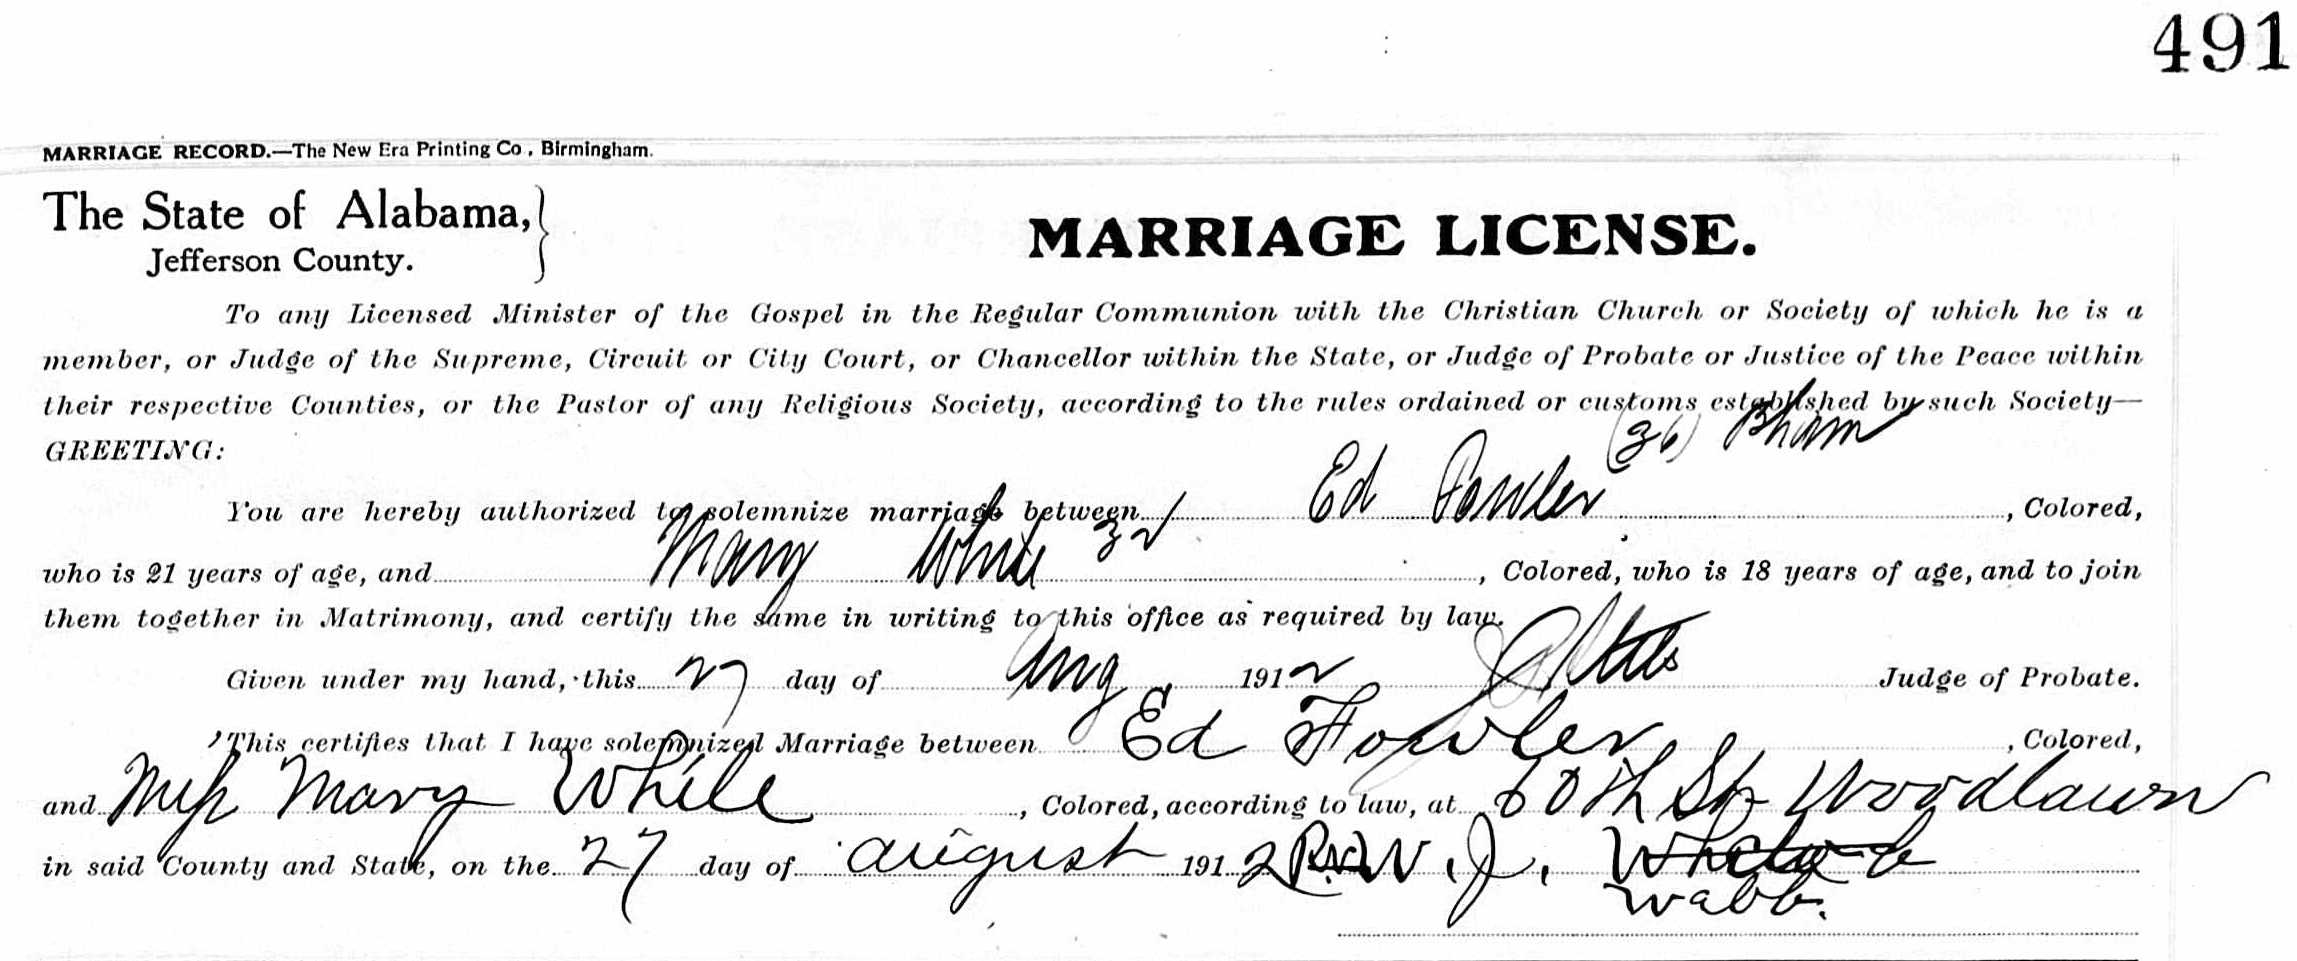 491
MARRIAGE RECORD.—The New Era Printing Co., Birmingham.
The State of Alabama,
Jefferson County.
MARRIAGE LICENSE.
To any Licensed Minister of the Gospel in the Regular Communion with the Christian Church or Society of which he is a
member, or Judge of the Supreme, Circuit or City Court, or Chancellor within the State, or Judge of Probate or Justice of the Peace within
their respective Counties, or the Pastor of any Religious Society, according to the rules ordained or customs established by such Society—
GREETING:
(36) Bham
You are hereby authorized to solemnize marriage between Ed Fowler, Colored,
who is 21 years of age, and Mary White 32, Colored, who is 18 years of age, and to join
them together in Matrimony, and certify the same in writing to this office as required by law.
Given under my hand, this 27 day of Aug 1912 Judge of Probate.
This certifies that I have solemnized Marriage between Ed Fowler, Colored,
and Miss Mary While, Colored, according to law, at 60th St Woodlawn
in said County and State, on the 27 day of august 1912 W. J.
Wabb.